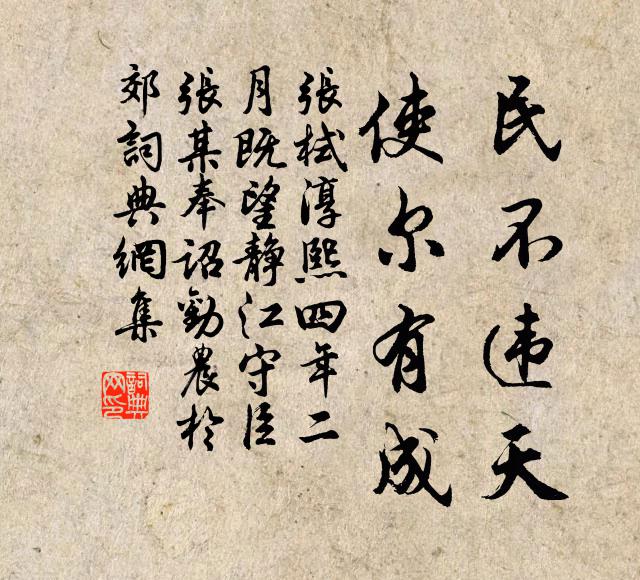 民不违天
使尔有成
張栻淳熙四年二
月既望静江守臣
張某奉诏勸農於
郊詞典網集
詞典
网印